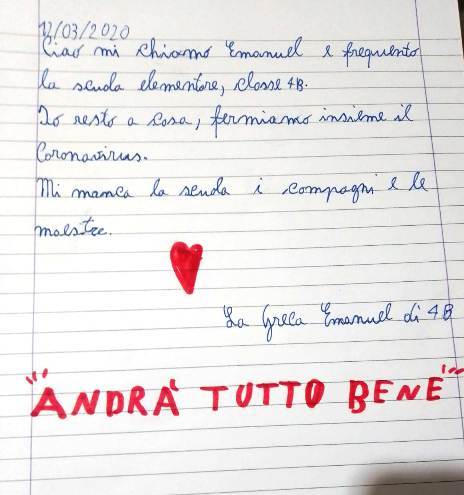 12/03/2020
Ciao mi chiamo Emanuel e frequento
la scuola elementare, classe 4B.
Io resto a casa, fermiamo insieme il
Coronavirus.
Mi manca la scuola i compagni e le
maestre.
La Greca Emanuel di 4B
"ANDRA' TUTTO BENE"